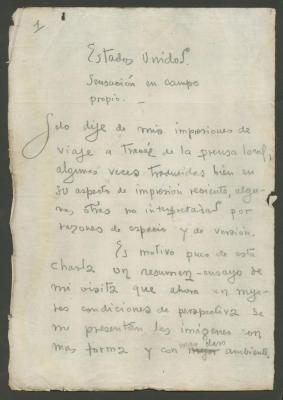 1
Estados Unidos.
Sensación en campo
propio. —
Solo dije de mis impresiones de
viaje a través de la prensa local,
algunas veces traducidas bien en
su aspecto de impresión reciente, algu-
nas otras no interpretadas por
razones de espacio y de versión.
Es motivo pues de esta
charla un resumen-ensayo de
mi visita que ahora en mejo-
res condiciones de perspectiva se
me presentan las imágenes con
mas forma y con mejor ambiente.
mas claro